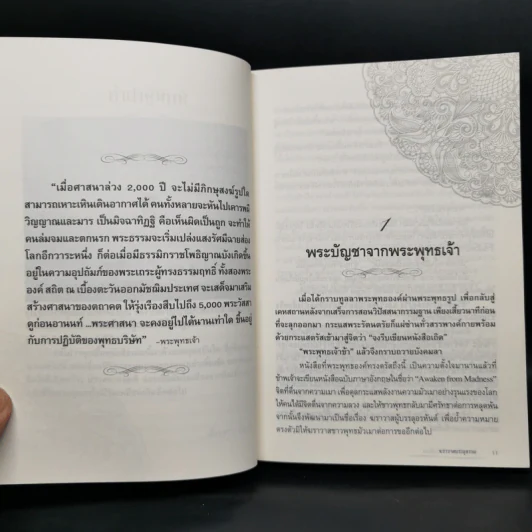 "เมื่อศาสนาล่วง 2,000 ปี จะไม่มีภิกษุสงฆ์รูปใด
สามารถเหาะเหินเดินอากาศได้ คนทั้งหลายจะหันไปเคารพผี
วิญญาณและมาร เป็นมิจฉาทิฏฐิ คือเห็นผิดเป็นถูก จะทำให้
คนล่มจมและตกนรก พระธรรมจะเริ่มเปล่งแสงรัศมีฉายส่อง
โลกอีกวาระหนึ่ง ก็ต่อเมื่อมีธรรมิกราชโพธิญาณบังเกิดขึ้น
อยู่ในความอุปถัมภ์ของพระเถระผู้ทรงธรรมฤทธิ์ ทั้งสองพระ
องค์ สถิต ณ เบื้องตะวันออกมัชฌิมประเทศ จะเสด็จมาเสริม
สร้างศาสนาของตถาคต ให้รุ่งเรืองสืบไปถึง 5,000 พระวัสสา
ดูก่อนอานนท์ ...พระศาสนา จะคงอยู่ไปได้นานเท่าใด ขึ้นอยู่
กับการปฏิบัติของพุทธบริษัท" -พระพุทธเจ้า
1
พระบัญชาจากพระพุทธเจ้า
เมื่อได้กราบทูลลาพระพุทธองค์ผ่านพระพุทธรูป เพื่อกลับสู่
เคหสถานหลังจากเสร็จการสอนวิปัสสนากรรมฐาน เพียงเสี้ยวนาทีก่อนที่
จะลุกออกมา กระแสพระรัตนตรัยก็แผ่ซ่านทั่วสรรพางค์กายพร้อม
ด้วยกระแสตรัสเข้ามาสู่จิตว่า "จงรีบเขียนหนังสือเถิด"
"พระพุทธเจ้าข้า" แล้วจึงกราบถวายบังคมลา
หนังสือที่พระพุทธองค์ทรงตรัสถึงนี้ เป็นความตั้งใจมานานแล้วที่
ข้าพเจ้าจะเขียนหนังสือฉบับภาษาอังกฤษในชื่อว่า "Awaken from Madness"
จิตที่ตื่นจากความเมา เพื่อดุลกระแสพลังงานความมัวเมาอย่างรุนแรงของโลก
ให้คนได้มีจิตตื่นจากความลวง และให้ชาวพุทธกลับมามีศรัทธาต่อการหลุดพ้น
จากนั้นจึงพัฒนามาเป็นชื่อเรื่อง ฆราวาสผู้บรรลุอรหันต์ เพื่อย้ำความหมาย
ตรงตัวมิให้ฆราวาสชาวพุทธมัวเมาต่อการขออีกต่อไป
ฆราวาสบรรลุอรหันต์